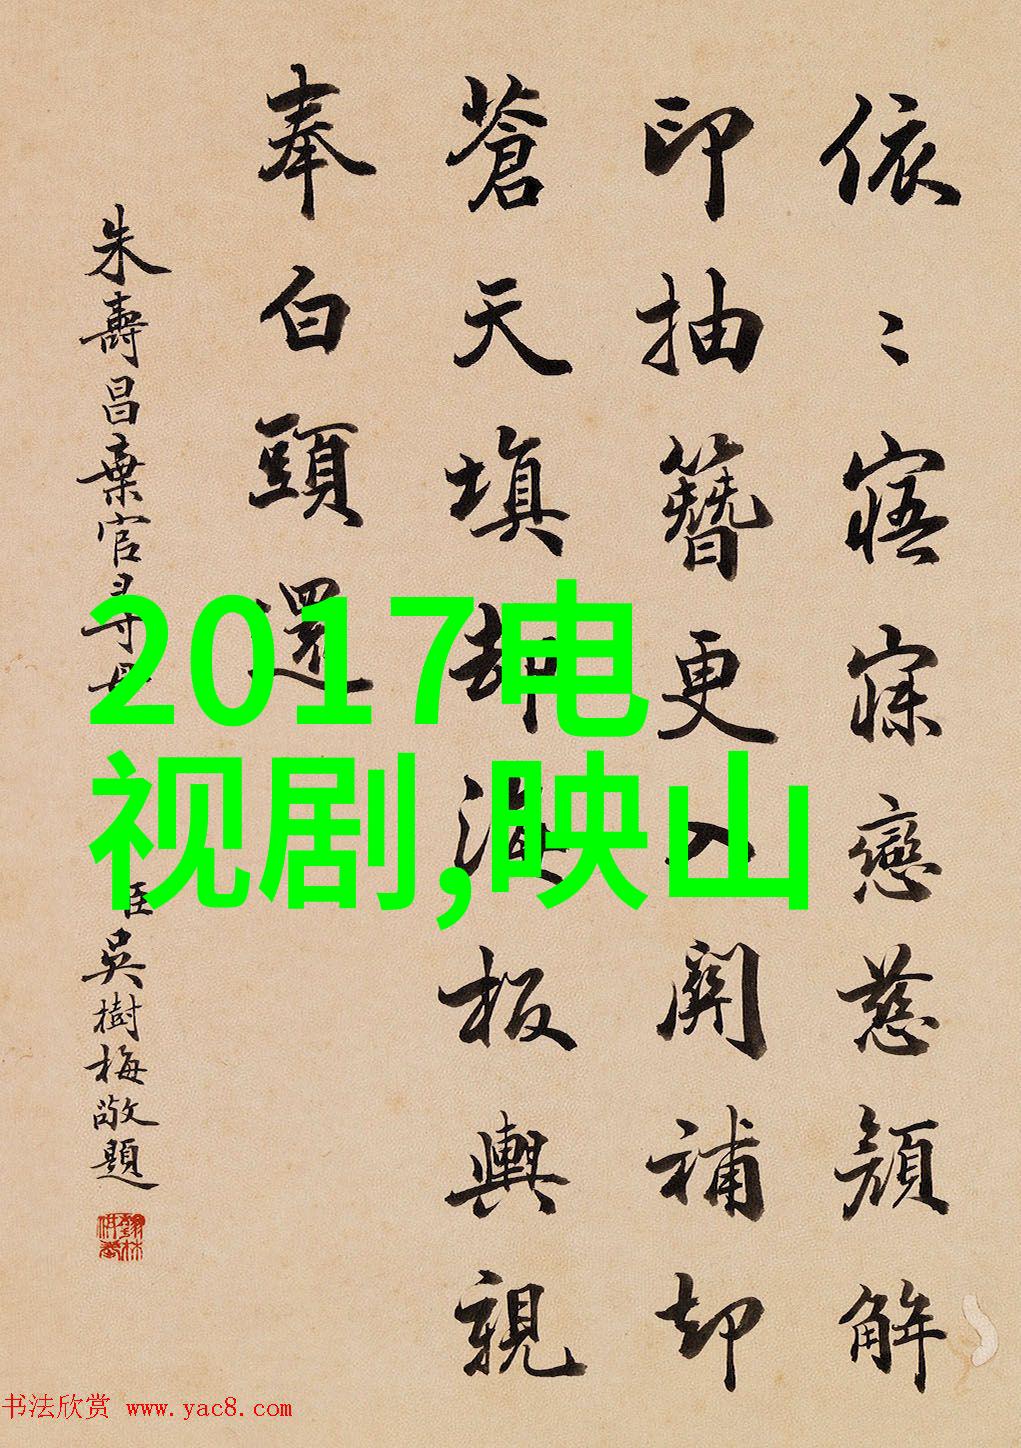 依〻寤寐戀慈顏解
印抽簪更入關補却
蒼天填却海板輿親
奉白頭還
朱壽昌棄官尋母
臣吳樹梅敬題
2017电
视剧,映山
书法欣赏 www.yac8.com